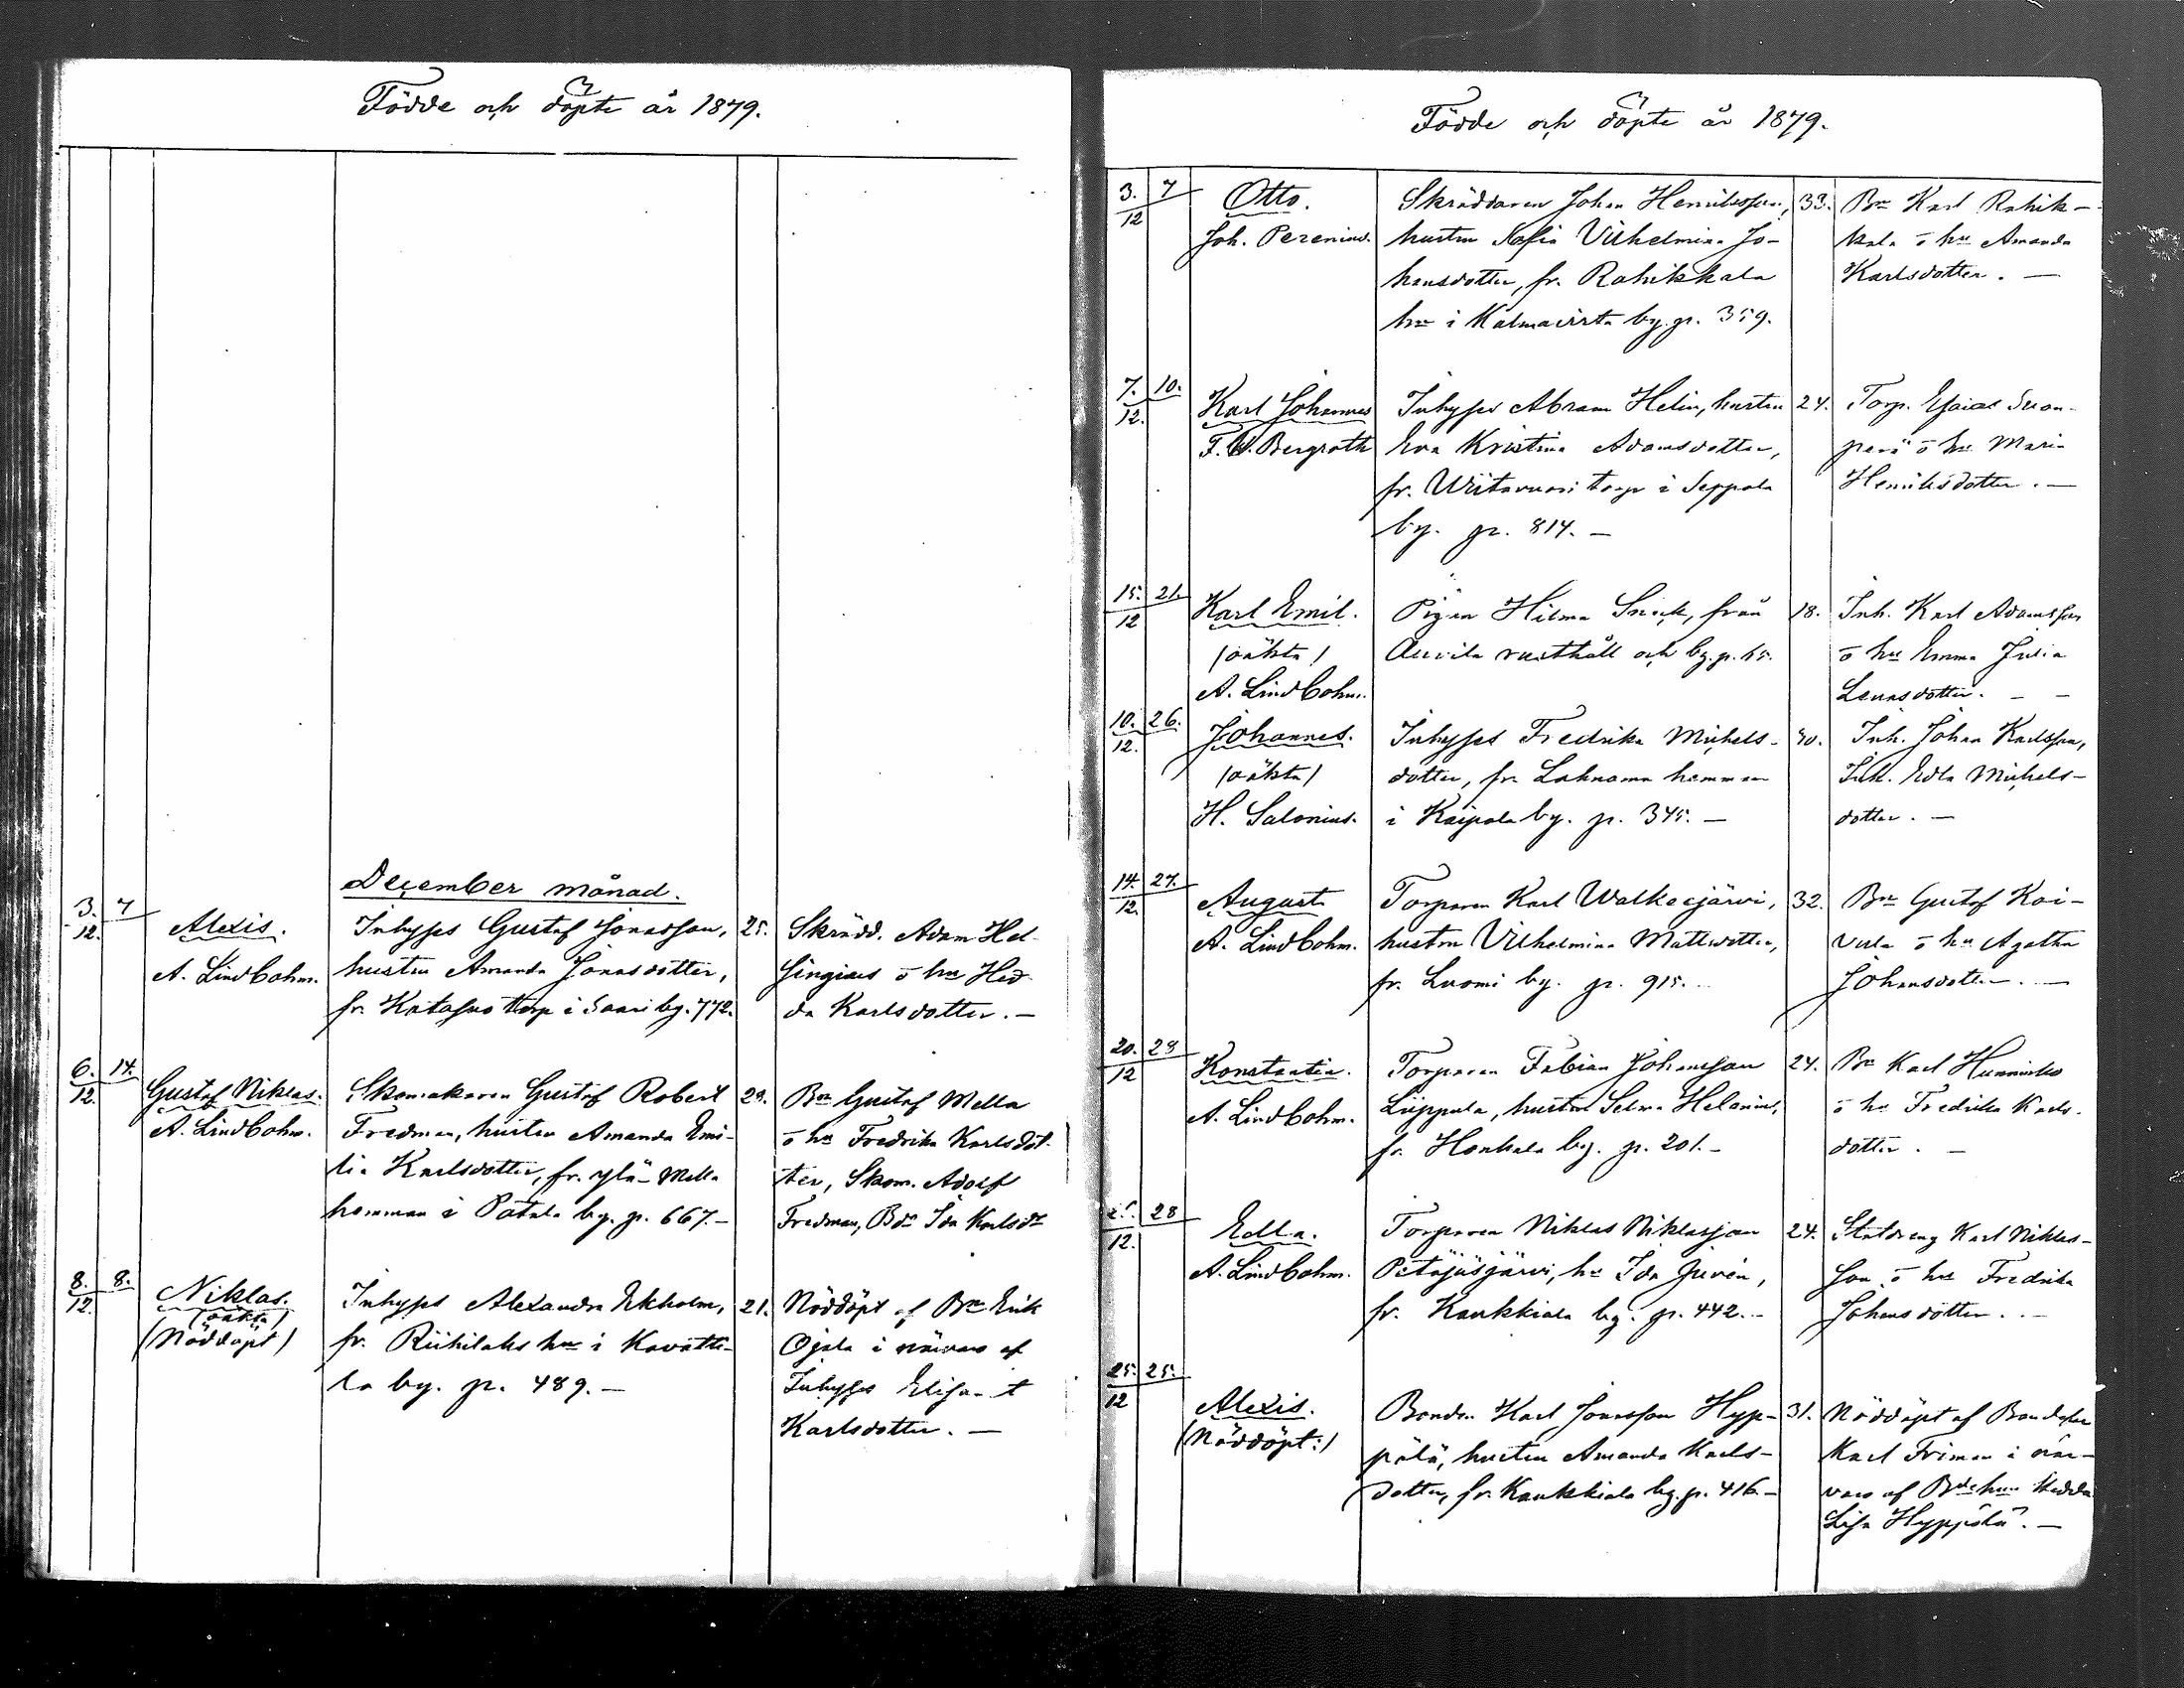 Födde och döpte år 1879.
December månad.
3. 7
12.
Alexis.
A. Lindbohm.
Inhyses Gustaf Jonasson,
hustru Amanda Jonasdotter,
fr. torp i Saari by. 772.
25.
Skrädd. Adam Hel-
singius o hu Hed-
da Karlsdotter. —
6. 14.
12.
Gustaf Niklas.
A. Lindbohm.
Skomakaren Gustaf Robert
Fredman, hustru Amanda Emi-
lia Karlsdotter, fr. Ylä-Mella
hemman i Patala by. p. 667. —
Bn Gustaf Mella
o hu Fredrika Karlsdot-
ter, Skom. Adolf
Fredman, Bdr Ida Karlsdr
8. 8.
12.
Niklas.
(oäkta)
(Nöddöpt)
Inhyses Alexandra Ekholm,
fr. Riihilaks hn i Kovatti-
la by. p. 489. —
21.
Nöddöpt af Bn Erik
Ojala i närvaro af
Inhyses
Karlsdotter. —
Födde och döpte år 1879.
3. 7
12
Otto.
Joh. Perenius.
Skräddaren Johan Henriksson,
hustru Sofia Vilhelmina Jo-
hansdotter, fr. Rahikkala
hn i Kalmavirta by. p. 359.
33.
Bn Karl Rahik-
kala o hu Amanda
Karlsdotter. —
7. 10.
12.
Karl Johannes
F. W. Bergroth
Inhyses Abram Helin, hustru
Eva Kristina Adamsdotter,
fr. torp i Seppola
by. p. 814. —
24.
Torp. Esaias Suon-
perä o hu Maria
Henriksdotter. —
15. 21.
12
Karl Emil.
(oäkta)
A. Lindbohm.
Pigan Hilma, från
Auvila rusthåll och by. p. 65.
18.
Inh. Karl Adamsson
o hu Emma Julia
Leunsdotter. — —
10. 26.
12.
Johannes.
(oäkta)
H. Salonius.
Inhyses Fredrika Michels-
dotter, fr. Lahnamm hemman
i Kaipola by. p. 345. —
40.
Inh. Johan Karlsson,
Inh. Edla Michels-
dotter. —
14. 27.
12.
August
A. Lindbohm.
Torparen Karl Walkeejärvi,
hustru Vilhelmina Mattsdotter,
fr. Luomi by. p. 915.
32.
Bn Gustaf Koi-
vula o hu Agatha
Johansdotter. —
20. 28
12
Konstantin.
A. Lindbohm.
Torparen Fabian Johansson
Liippula, hustru Selma Helenius,
fr. Honkala by. p. 201. —
24.
Bn Karl Hunninko
o hu Fredrika Karls-
dotter. —
28
12.
Edla.
A. Lindbohm.
Torparen Niklas Niklasson
Petäjäsjärvi, hu Ida Juvén,
fr. Kaukkiala by. p. 442. —
24.
Statdreng Karl Niklas-
son o hu Fredrika
Johansdotter. —
25. 25.
12
Alexis.
(Nöddöpt:)
Bonden Karl Jonasson Hyp-
pölä, hustru Amanda Karls-
dotter, fr. Kaukkiala by. p. 416. —
31.
Nöddöpt af Bondeson
Karl Friman i när-
varo af Bdehun Hedda
Lisa Hyppölä. —